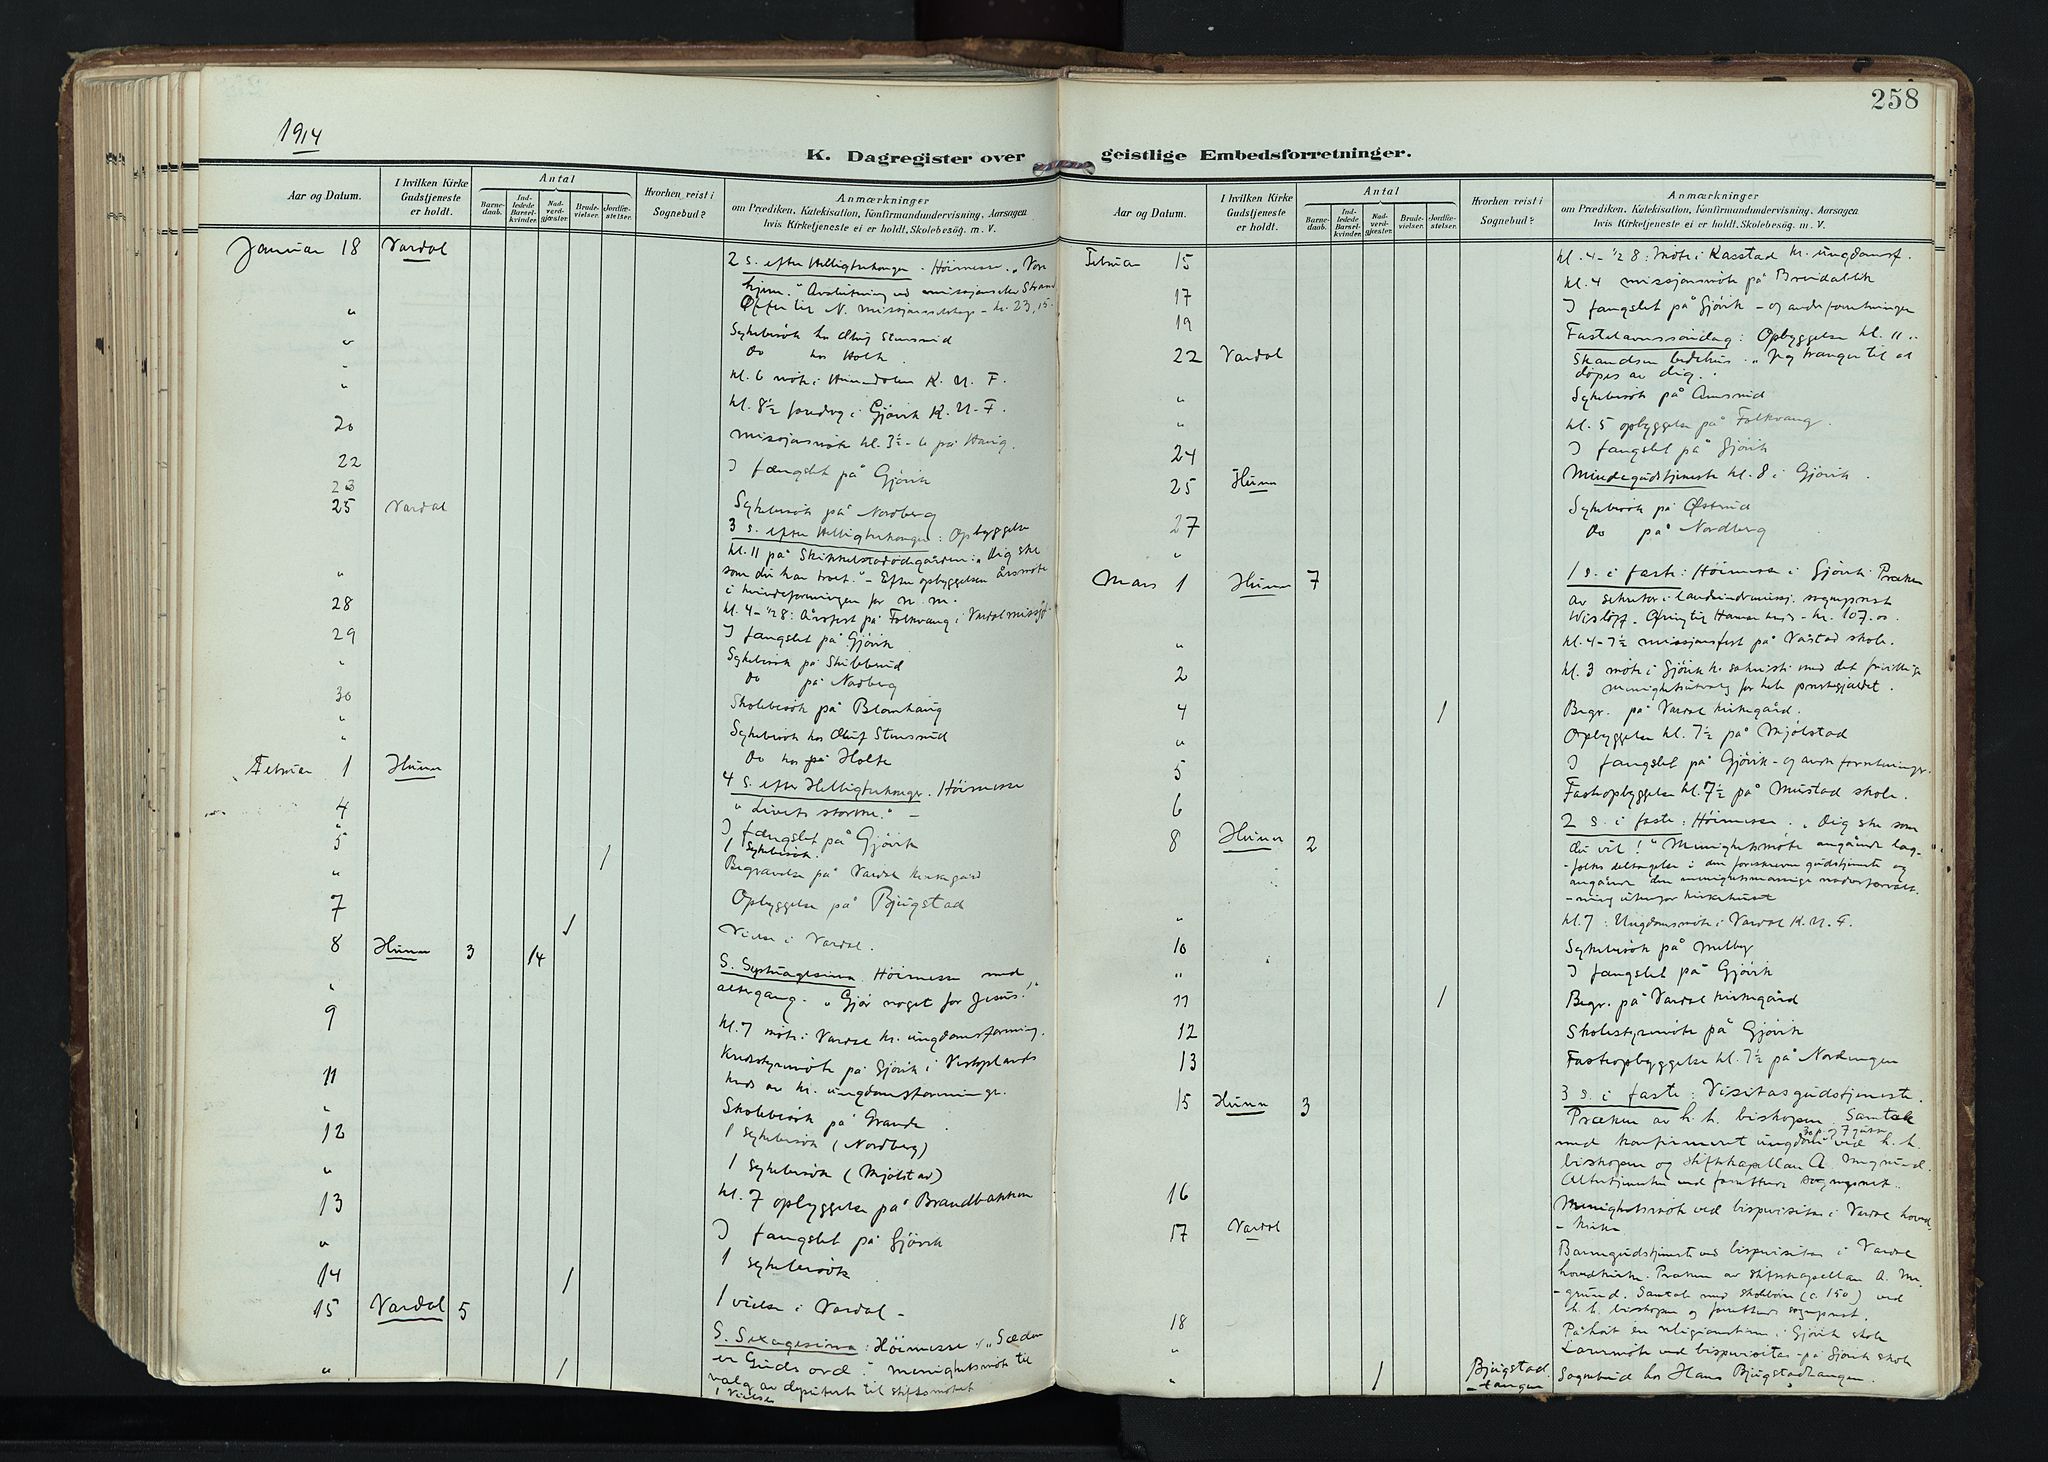 1914
258
K. Dagregister over geistlige Embedsforretninger.
Aar og Datum.
I hvilken Kirke Gudstjeneste er holdt.
Antal
Barnedaab.
Indledede Barselkvinder.
Nadverdgjæster.
Brudevielser.
Jordfæstelser.
Hvorhen reist i Sognebud?
Anmærkninger
om Prædiken, Katekisation, Konfirmandundervisning, Aarsagen
hvis Kirketjeneste ei er holdt, Skolebesög. m. V.
Januar 18 Vardal 2 s. efter Helligtrekonger. Höimesse. "Vor
hjem." Avslutning ved missionær Strand
Offer til N. missjonsselskap - kr. 23,15.
" Sykebesök hos Oluf Stensrud
" Do hos Holte.
" kl. 6 möte i Hunndalen K. U. F.
" kl. 8½ foredrag i Gjövik K. U. F.
20 Missjonsmöte kl. 3½-6 på Haug.
22 I fængslet på Gjövik
23 Sykebesök på Nordberg
25 Vardal 3 s. efter Helligtrekonger: Opbyggelse
kl. 11 på Skikkelstadödegården: "Dig ske
som du har troet." - Efter opbyggelsen årsmöte
i kvindeforeningen for n. m.
" kl. 4-½8: Årsfest på Folkvang i Vardal missjf.
28 I fængslet på Gjövik
29 Sykebesök på Skibberud
" Do på Nordberg
30 Skolebesök på Blomhaug
" Sykebesök hos Oluf Stensrud
" Do hos på Holte
Februar 1 Hunn 4 s. efter Helligtrekonger. Höimesse
"Livets storme." -
4 I fængslet på Gjövik
" 1 Sykebesök.
5 1 Begravelse på Vardal kirkegård
" Opbyggelse på Bjugstad
7 1 Vielse i Vardal.
8 Hunn 3 14 S. Septuagesima. Höimesse med
altergang. "Gjör noget for Jesus!"
" kl. 7 möte i Vardal kr. ungdomsforening.
9 Kredsstyremöte på Gjövik i Vestoplands
kreds av kr. ungdomsforeninger.
11 Skolebesök på Grande.
" 1 Sykebesök (Nordberg)
12 1 Sykebesök (Mjölstad)
" kl. 7 opbyggelse på Brandbakken
13 I fængslet på Gjövik
" 1 sykebesök
14 1 1 vielse i Vardal -
15 Vardal 5 S. Sexagesima: Höimesse: "Sæden
er Guds ord." menighetsmöte til
valg av deputert til stiftsmötet
" 1 1 Vielse
K. Dagregister over geistlige Embedsforretninger.
Aar og Datum.
I hvilken Kirke Gudstjeneste er holdt.
Antal
Barnedaab.
Indledede Barselkvinder.
Nadverdgjæster.
Brudevielser.
Jordfæstelser.
Hvorhen reist i Sognebud?
Anmærkninger
om Prædiken, Katekisation, Konfirmandundervisning, Aarsagen
hvis Kirketjeneste ei er holdt, Skolebesög. m. V.
Februar 15 kl. 4-½8: möte i Kasstad kr. ungdomsf.
17 kl. 4 missjonsmöte på Breidablik
19 I fængslet på Gjövik - og andre forretninger
22 Vardal Fastelavnssöndag: Opbyggelse kl. 11
Skandsen bedehus. "Jeg trænger til at
döpes av dig."
" Sykebesök på Amsrud
" kl. 5 opbyggelse på Folkvang.
24 I fængslet på Gjövik
25 Hunn Mindegudstjeneste kl. 8 i Gjövik.
27 Sykebesök på Östrud
" Do på Nordberg
Mars 1 Hunn 7 1 s. i faste: Höimesse i Gjövik. Præken
av sekretær i landsindremissj. sogneprest
Wislöff. Offring til samme kreds - kr. 107.00.
" kl. 4-7½ missjonsfest på Vastad skole.
2 kl. 3 möte i Gjövik k. sakristi med det frivillige
menighetsutvalg for hele prestegjældet.
4 1 Begr. på Vardal kirkegård.
" Opbyggelse kl. 7½ på Mjölstad
5 I fængslet på Gjövik - og andre forretninger.
6 Fasteopbyggelse kl. 7½ på Mustad skole.
8 Hunn 2 2 s. i faste: Höimesse. "Dig ske som
du vil!" Menighetsmöte angående læg-
-folks deltagelse i den foreskrevne gudstjeneste og
angående den menighetsmæssige nadverforvalt-
-ning utenfor kirkehuset
" kl. 7: Ungdomsmöte i Vardal K. U. F.
10 Sykebesök på Melby
" I fængslet på Gjövik
11 1 Begr. på Vardal kirkegård
12 Skolestyremöte på Gjövik
13 Fasteopbyggelse kl. 7½ på Nordengen
15 Hunn 3 3 s. i faste: Visitasgudstjeneste.
Præken av h. h. biskopen. Samtale
med konfirmeret ungdom ved h. h.
biskopen og stiftskapellan A. Megrund.
Altertjeneste ved forrettende sogneprest.
16 Menighetsmöte ved bispevisitas i Vardal hoved
-kirke
17 Vardal Barnegudstjeneste ved bispevisitas i Vardal
hovedkirke. Præken av stiftskapellan A. Me-
-grund. Samtale med skolebörn (c. 150) ved
h. h. biskopen og forrettende sogneprest.
18 Påhört en religionstime i Gjövik skole
" Lærermöte ved bispevisitas på Gjövik skole
" 1 Bjugstad-
-hangen Sognebud hos Hans Bjugstadhangen.